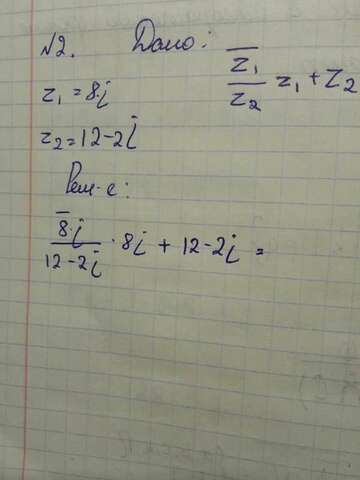 №2. Дано:
z₁ = 8·i
z̅₁/z₂ z₁ + z₂
z₂ = 12-2i
Реш-е:
8̅·i/12-2i · 8i + 12-2i =